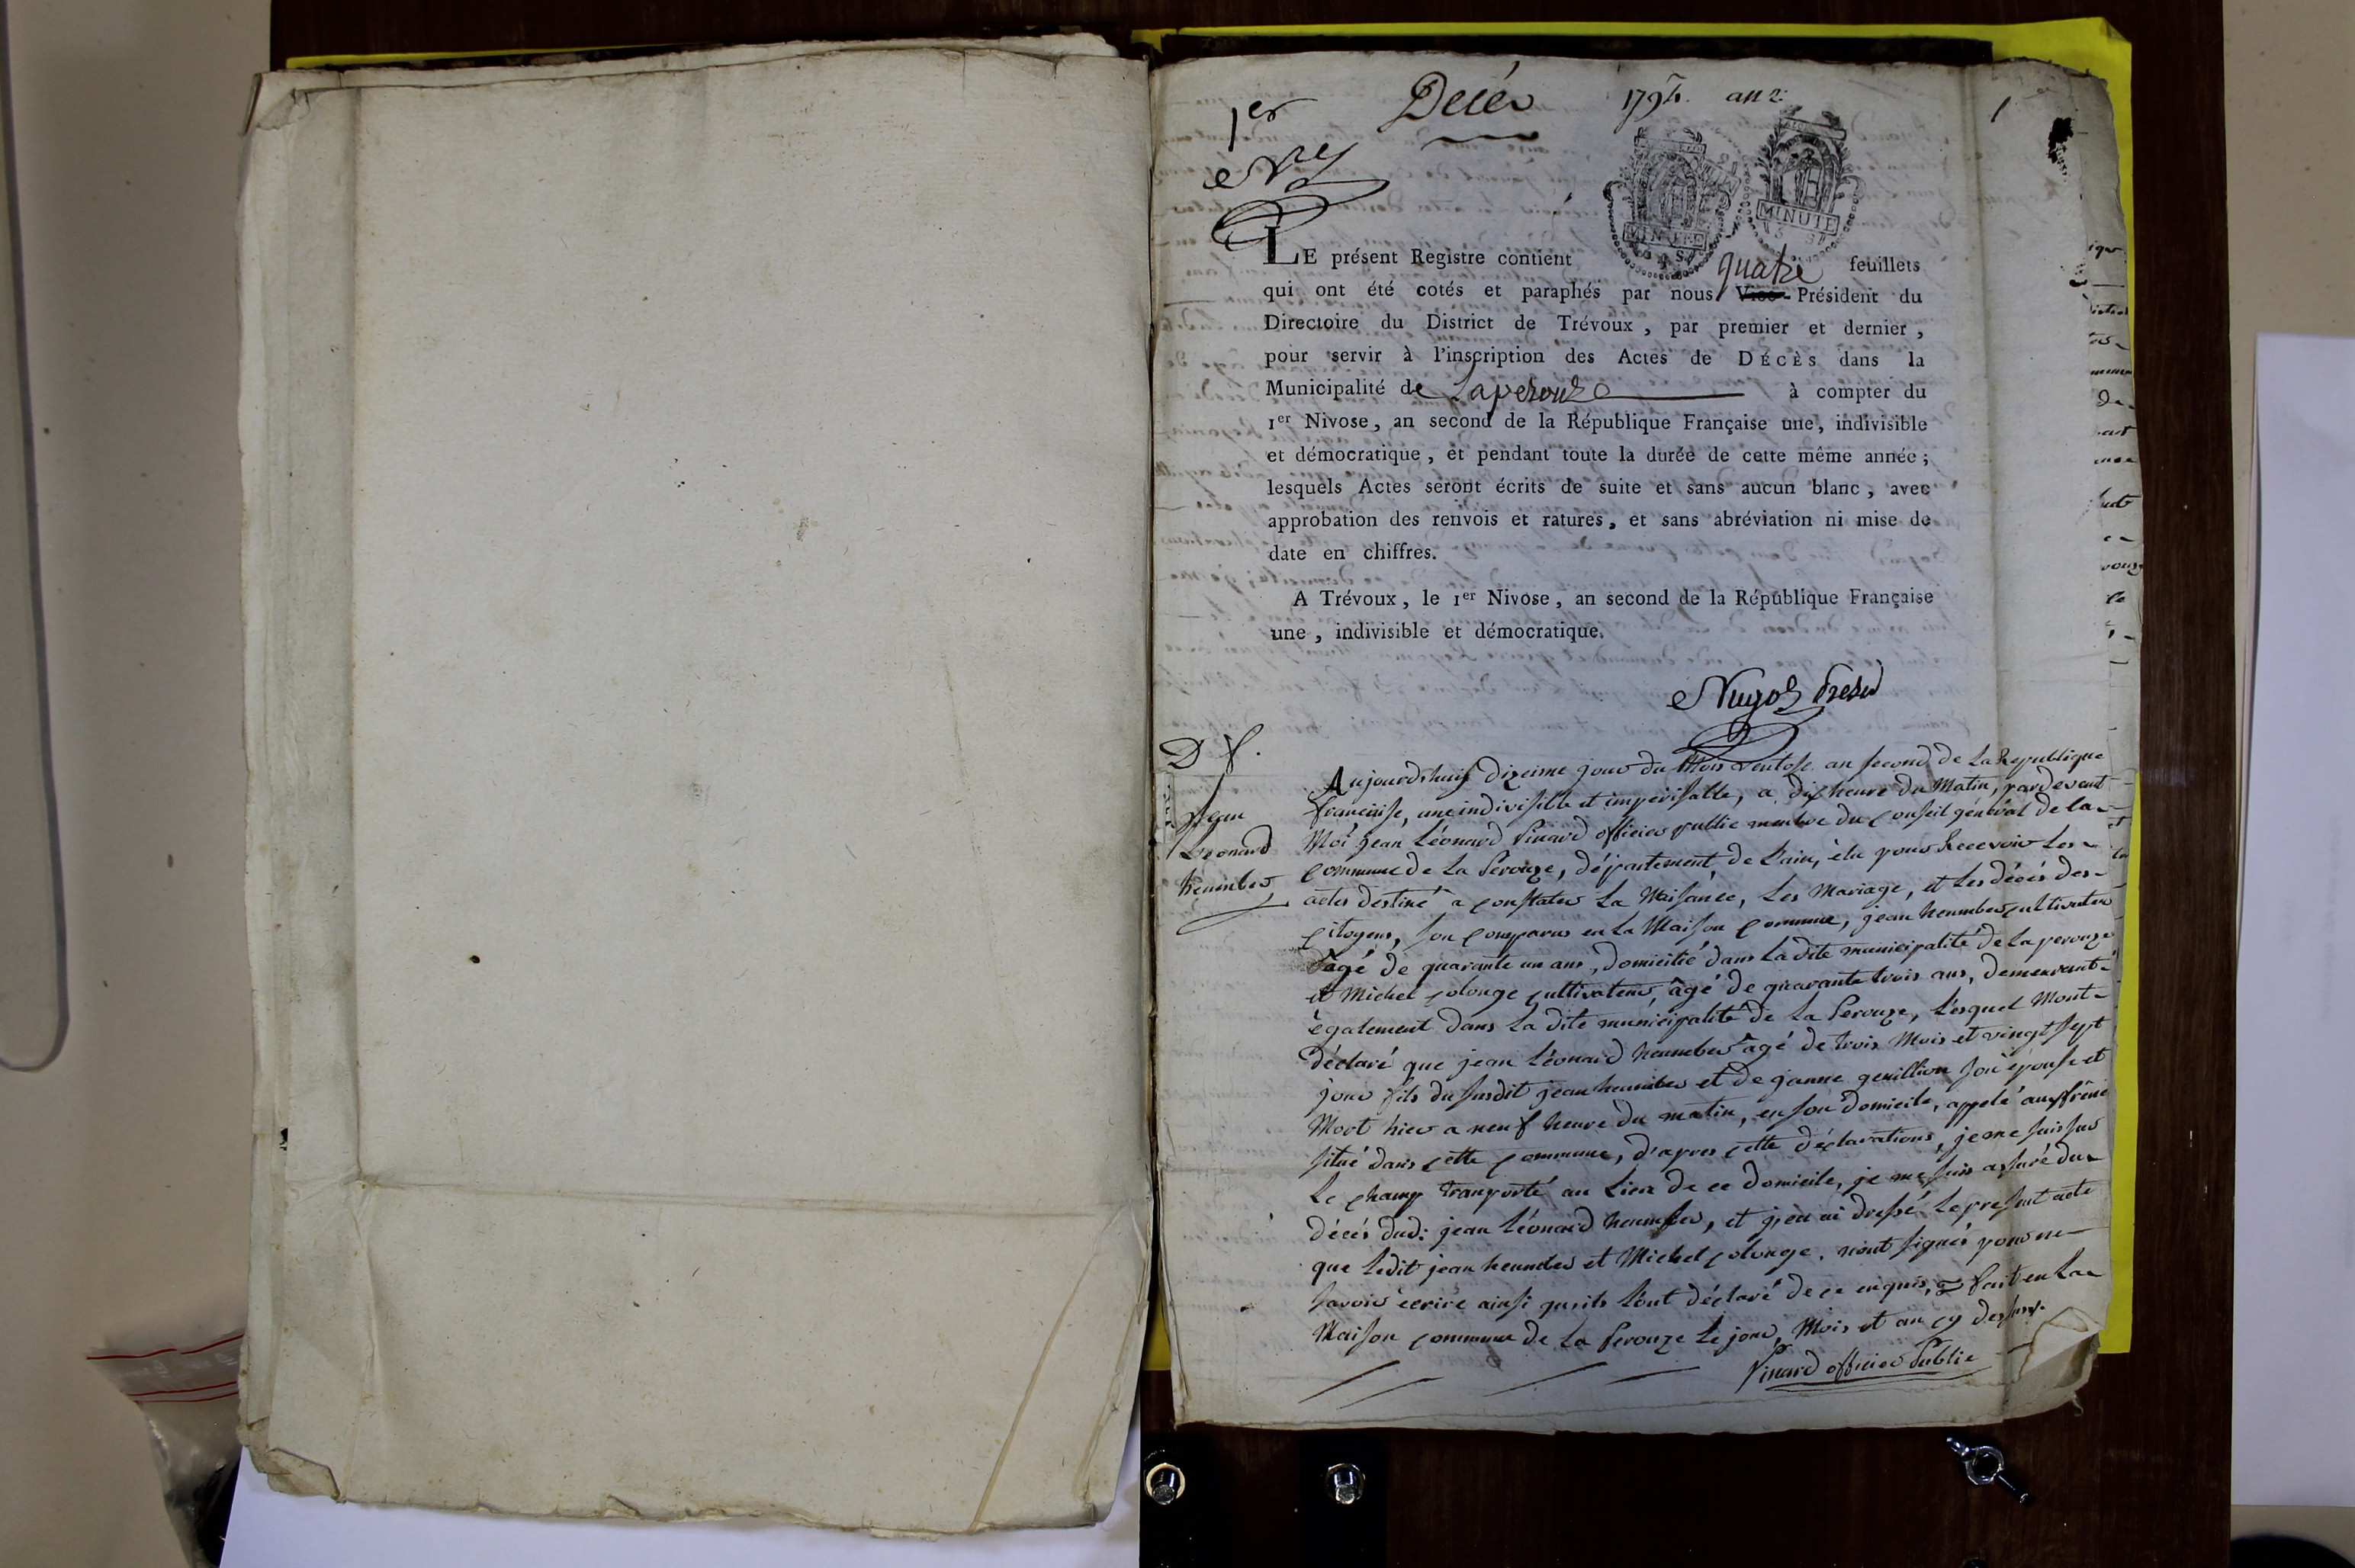 1er Décès 1794. an 2. 1
Nre
MINUTE
MINUTE
LE présent Registre contient quatre feuillets
qui ont été cotés et paraphés par nous Vice-Président du
Directoire du District de Trévoux, par premier et dernier,
pour servir à l'inscription des Actes de DÉCÈS dans la
Municipalité de Laperouze à compter du
1er Nivose, an second de la République Française une, indivisible
et démocratique, et pendant toute la durée de cette même année;
lesquels Actes seront écrits de suite et sans aucun blanc, avec
approbation des renvois et ratures, et sans abréviation ni mise de
date en chiffres.
A Trévoux, le 1er Nivose, an second de la République Française
une, indivisible et démocratique.
Presid
D
jean
Léonard
heumber
Aujourdhuis dixeime jour du Mois ventose an second de La Republique
francaise, une indivisible et imperissable, a dix heure du Matin, pardevent
Moi jean Léonard Pinard officier public membre du conseil général de la
commune de La Perouze, département de Lain, élu pour Recevoir Les
actes destiné a constater La Naisance, Les Mariage, et Les décés des
citoyens, son comparus en La Maison commune, jean heumber cultivateur
âgé de quarante un ans, domicilié dans La dite municipalité de La perouze
et Michel colonge cultivateur, âgé de quarante trois ans, demeurant
également dans La dite municipalité de La Perouze, Lesquel Mont
déclaré que jean Léonard heumber âgé de trois Mois et vingt sept
jour fils du susdit jean heumber et de janne genillion son épouse et
Mort hier a neuf heure du matin, en son domicile, appelé aux frêne
situé dans cette commune, d'apres cette déclarations, je me suis sur
Le champ tranporté au Lieu de ce domicile, je me suis assuré du
décés dud: jean Léonard heumber, et j'en ai dressé Le present acte
que Ledit jean heumber et Michel colonge, n'ont signés pour ne
savoir écrire ainsi qu'ils L'ont déclaré de ce enquis, fait en La
Maison commune de La Perouze Le jour, Mois et an cy dessus.
Pinard officier Public